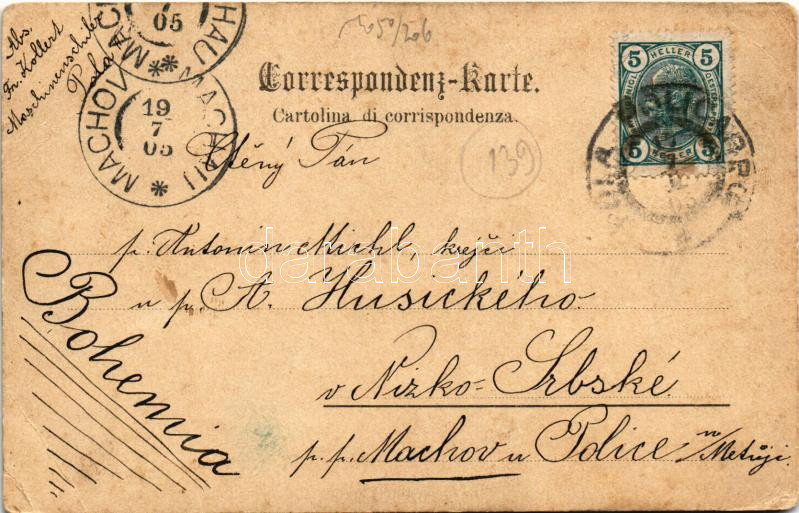 Abs.
Fr. Kollert
Maschinenschüler
Pola
MACHOV MACHAU
05
MACHOV MACHAU
19
7
05
1050/206
Correspondenz-Karte.
Cartolina di corrispondenza.
139
5 HELLER 5
5 HELLER 5
POLA
Ctěný Pán
p. Antonin Michl, krejčí
u p. A. Husického
v Nizko-Srbské
p. p. Machov u Police n/Metují.
Bohemia
darabanth